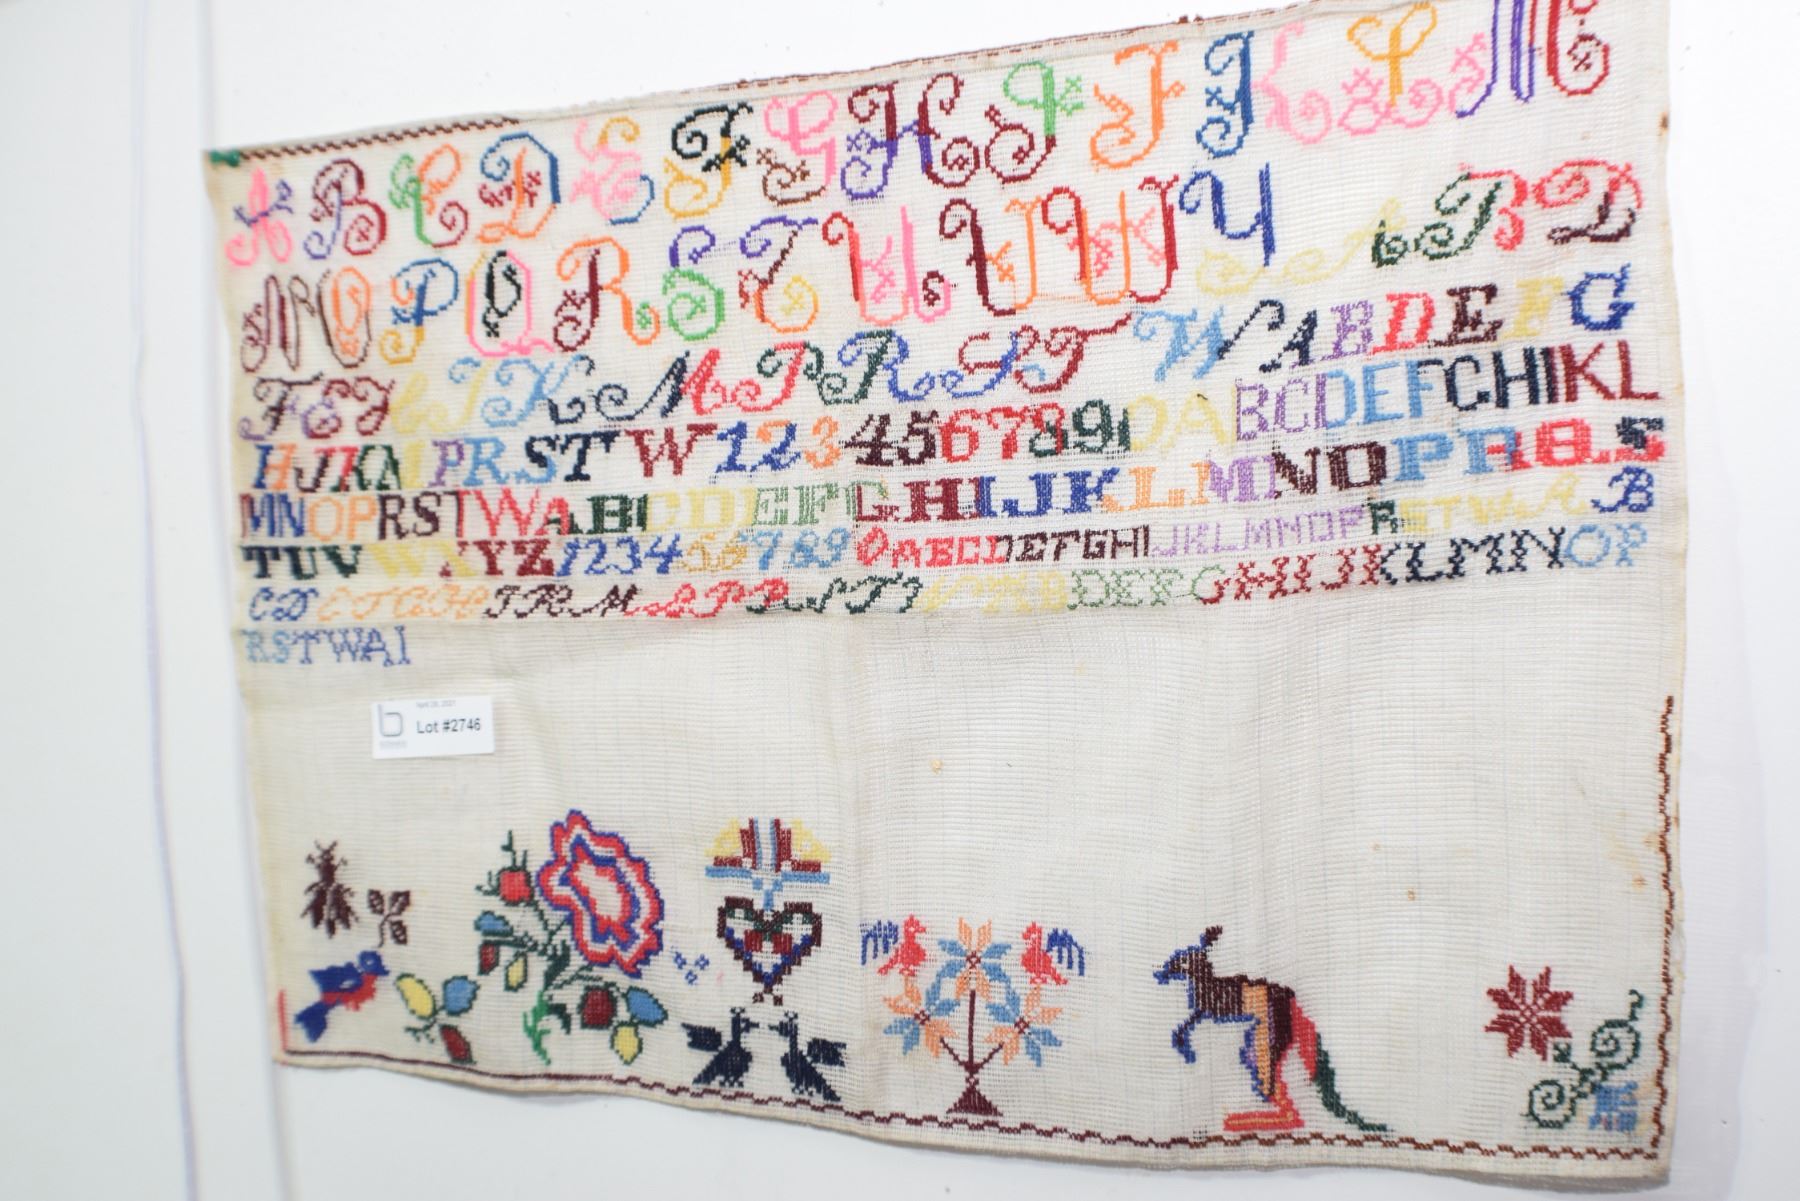 A B C D E F G H I J J K L M
N O P Q R S T U U W Y A B D
F E Y C J K M P R S T W A B D E F G
H J K A I P R S T W 1 2 3 4 5 6 7 8 9 0 A B C D E F G H I K L
M N O P R S T W A A B C D E F G H I J K L M N O P R 8. S
T U V W X Y Z 1 2 3 4 5 6 7 8 9 0 A B C D E F G H I J K L M N O P R S T W A A B
C D E F G H J K M L P R S T I V W A B D E F G H I J K L M N O P
R S T W A I
April 28, 2021
b
Lot #2746